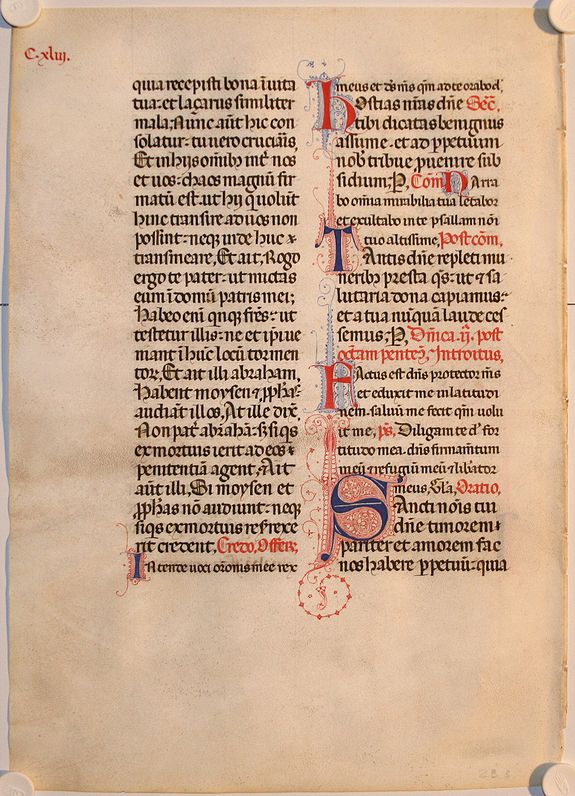 C. xliij.
quia recepisti bona ĩ uita
tua: et laçarus similiter
mala; Nunc aũt hic con
solatur: tu uero cruciaris,
Et in hijs omĩb; int̃ nos
et uos: chaos magnũ fir
matũ est. ut hij q̃ uolũt
hinc transire ad uos non
possint: neq; inde huc ⁊
transmeare, Et ait; Rogo
ergo te pater: ut mictas
eum ĩ domũ patris mei;
habeo enĩ qnq; fr̃es: ut
testetur illis: ne et ip̃i ue
niant ĩ hũc locũ tormen
tor;, Et ait illi abraham,
habent moysen ⁊ ꝓphas:
audiant illos, At ille dix̃,
Non pat̃ abrahã: s; siqis
ex mortuis ierit ad eos:
penitentiã agent; Ait
aũt illi, Si moysen et
ꝓphas nõ audiunt: neq;
siq̃s ex mortuis res̃rexe
rit credent, Credo, Offer;,
Intende uoci or̃onis mee rex
meus et ds̃ ms̃ qm̃ ad te orabo d̃
Hostias nr̃as dñe Sec̃,
tibi dicatas benignus
assume. et ad ꝑpetuum
nob̃ tribue ꝓuenire sub
sidium; P, Com̃ Narra
bo om̃ia mirabilia tua letabor
et exultabo in te psallam nõi
tuo altissime, Post com̃,
Tantis dñe repleti mu
nerib; presta qs̃: ut ⁊ sa
lutaria dona capiamus:
et a tua nũquã laude ces
semus; P, Dñica .ij. post
octam̃ pentec̃, Introitus,
Factus est dñs protector ms̃
et eduxit me in latitudi
nem. saluũ me fecit qm̃ uolu
it me, ps̃, Diligam te d̃ for
titudo mea. dñs firmam̃tum
meũ ⁊ refugiũ meũ ⁊ lib̃ator
meus, Gl̃a, Oratio,
Sancti nõis tui
dñe timorem
pariter et amorem fac
nos habere ꝑpetuũ: quia